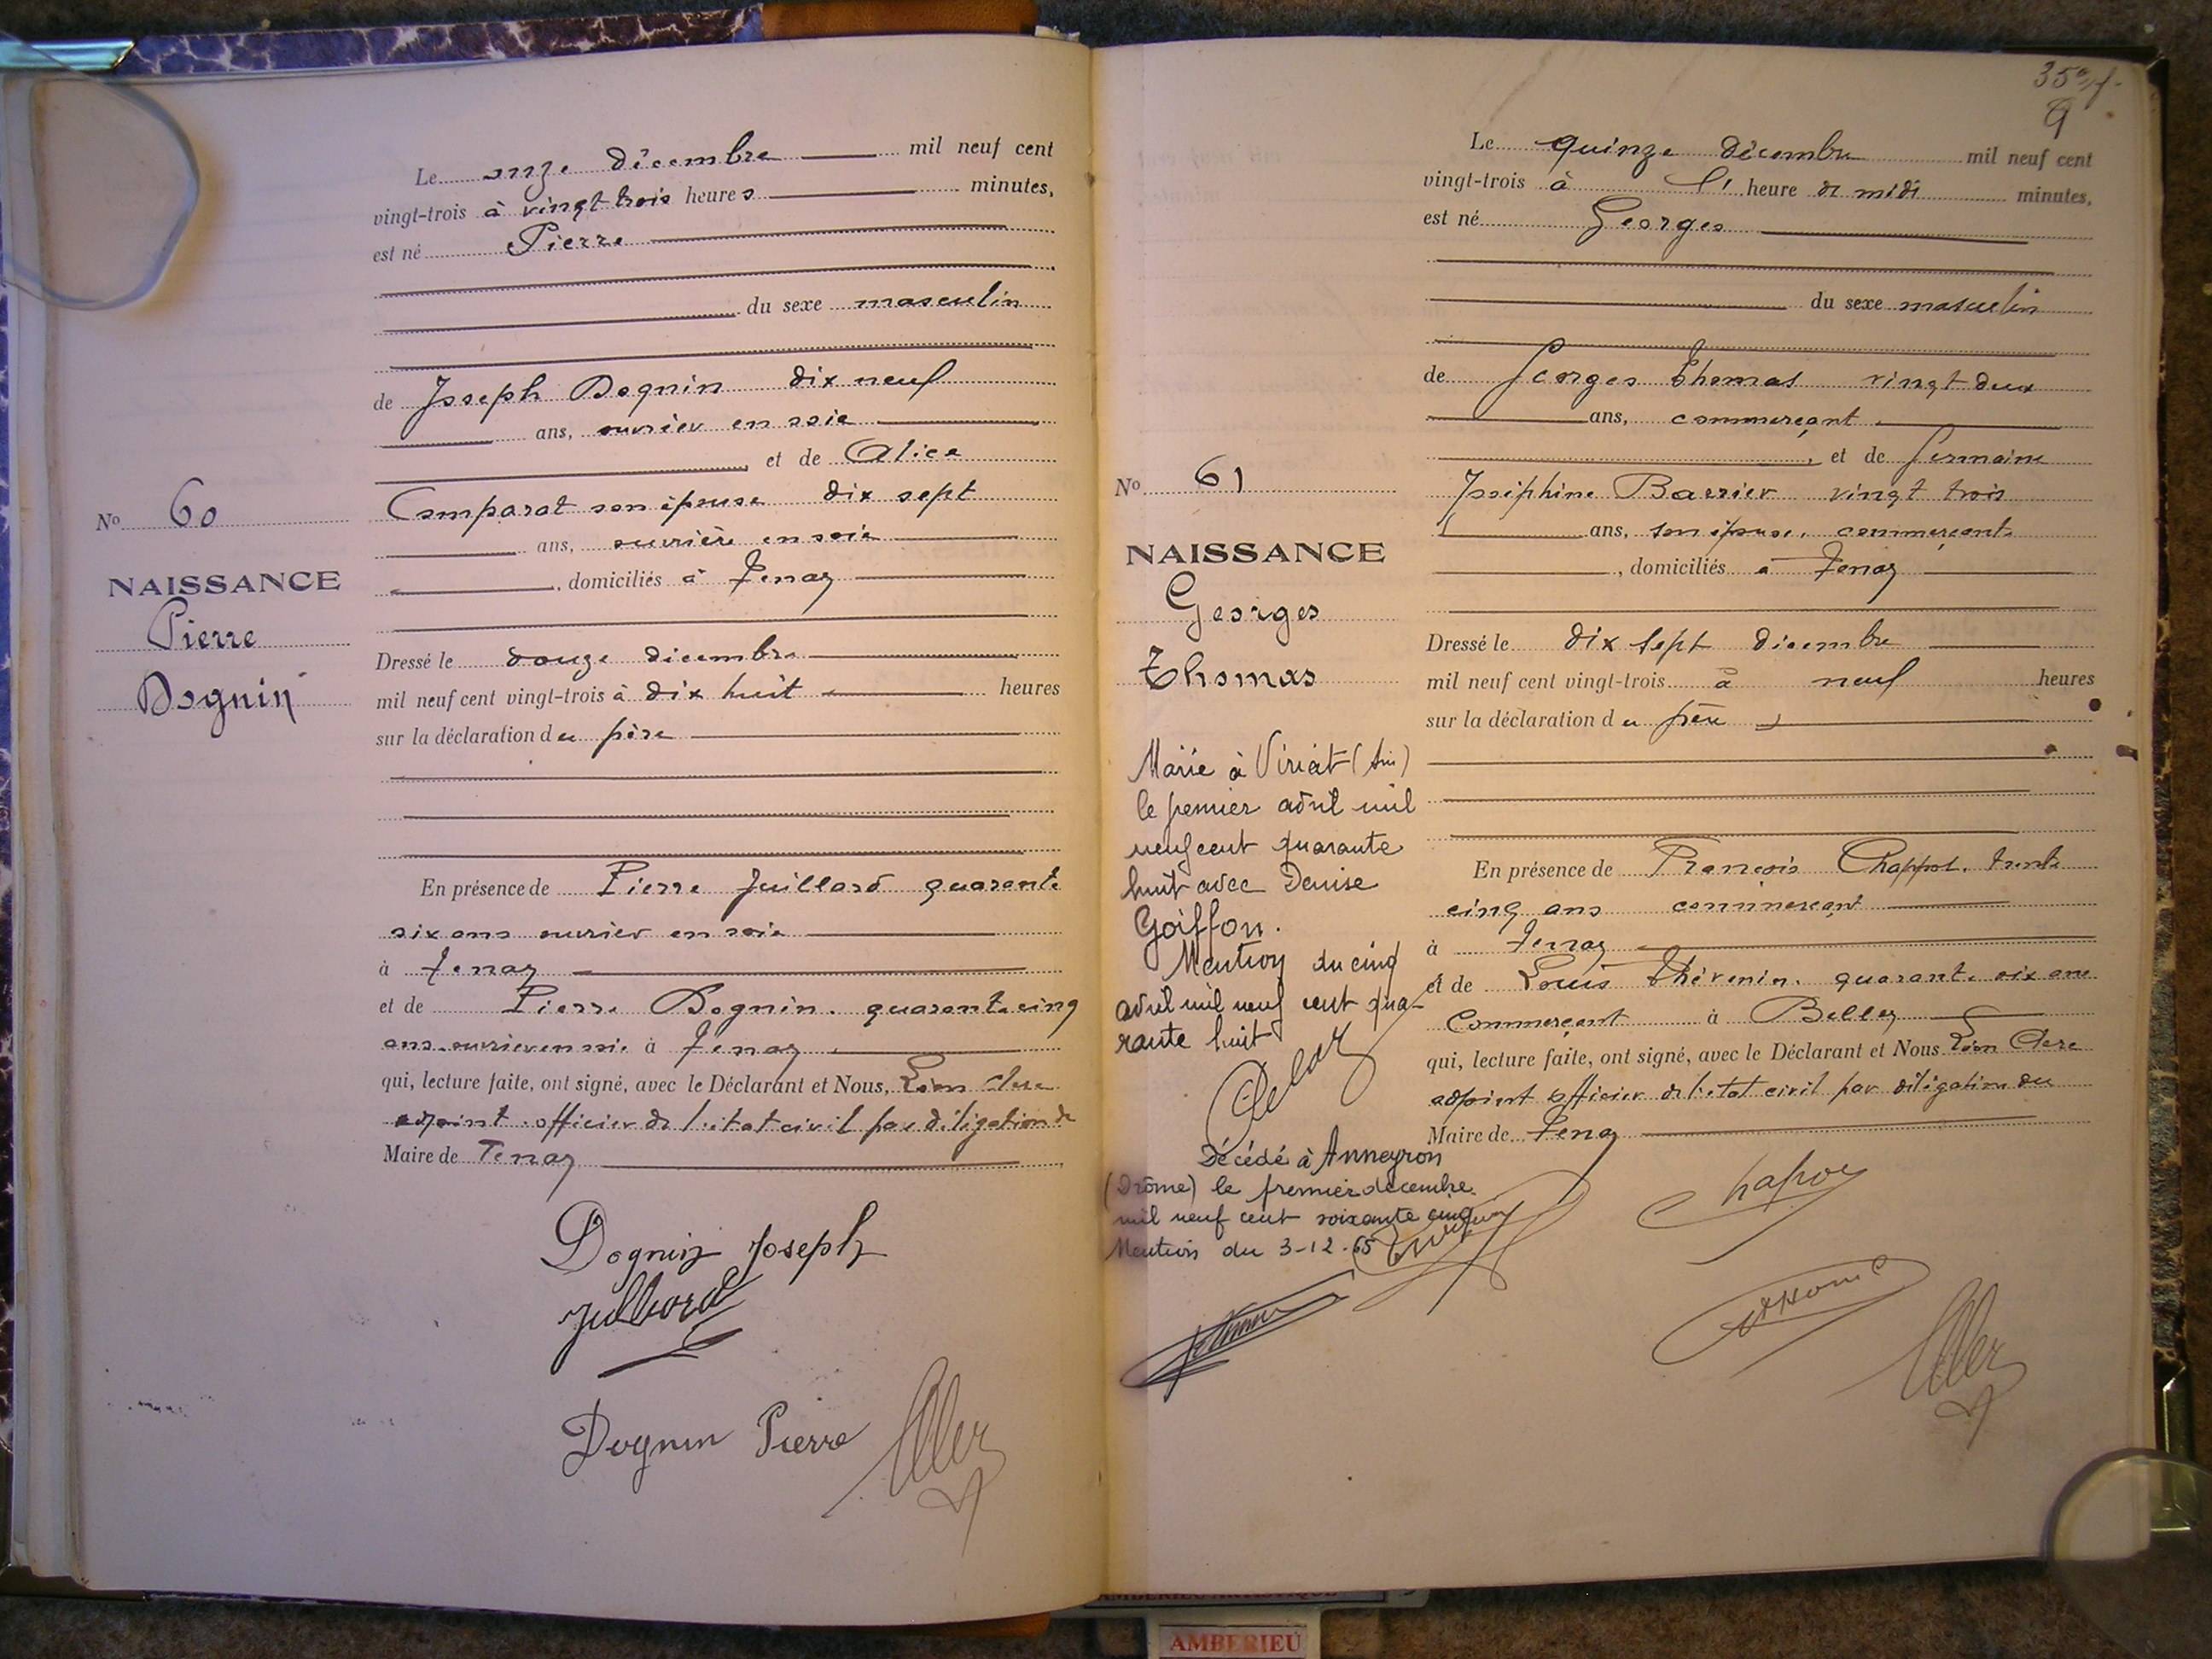 Le onze décembre mil neuf cent
vingt-trois à vingt trois heures minutes,
est né Pierre
du sexe masculin
de Joseph Dognin dix neuf
ans, ouvrier en soie
et de Alice
Comparat son épouse dix sept
ans, ouvrière en soie
, domiciliés à Tenay
No 60
NAISSANCE
Pierre
Dognin
Dressé le douze décembre
mil neuf cent vingt-trois à dix huit heures
sur la déclaration du père
En présence de Pierre Juillard quarante
six ans ouvrier en soie
à Tenay
et de Pierre Dognin. quarante cinq
ans ouvrier en soie à Tenay
qui, lecture faite, ont signé, avec le Déclarant et Nous, Léon Clerc
adjoint officier de l'état civil par délégation du
Maire de Tenay
Dognin Joseph
Juillard
Dognin Pierre
9
Le quinze décembre mil neuf cent
vingt-trois à l'heure de midi minutes,
est né Georges
du sexe masculin
de Georges Thomas vingt deux
ans, commerçant
, et de Germaine
Joséphine Barrier vingt trois
ans, son épouse, commerçante
, domiciliés à Tenay
No 61
NAISSANCE
Georges
Thomas
Marié à Viriat (Ain)
le premier avril mil
neuf cent quarante
huit avec Denise
Goiffon.
Mention du cinq
avril mil neuf cent qua-
rante huit
Décédé à Anneyron
(Drôme) le premier décembre
mil neuf cent soixante cinq
Mention du 3-12-65
Dressé le dix sept décembre
mil neuf cent vingt-trois à neuf heures
sur la déclaration du père
En présence de François Chappot. trente
cinq ans commerçant
à Tenay
et de Louis Thévenin. quarante six ans
Commerçant à Belley
qui, lecture faite, ont signé, avec le Déclarant et Nous Léon Clerc
adjoint officier de l'état civil par délégation du
Maire de Tenay
AMBERIEU